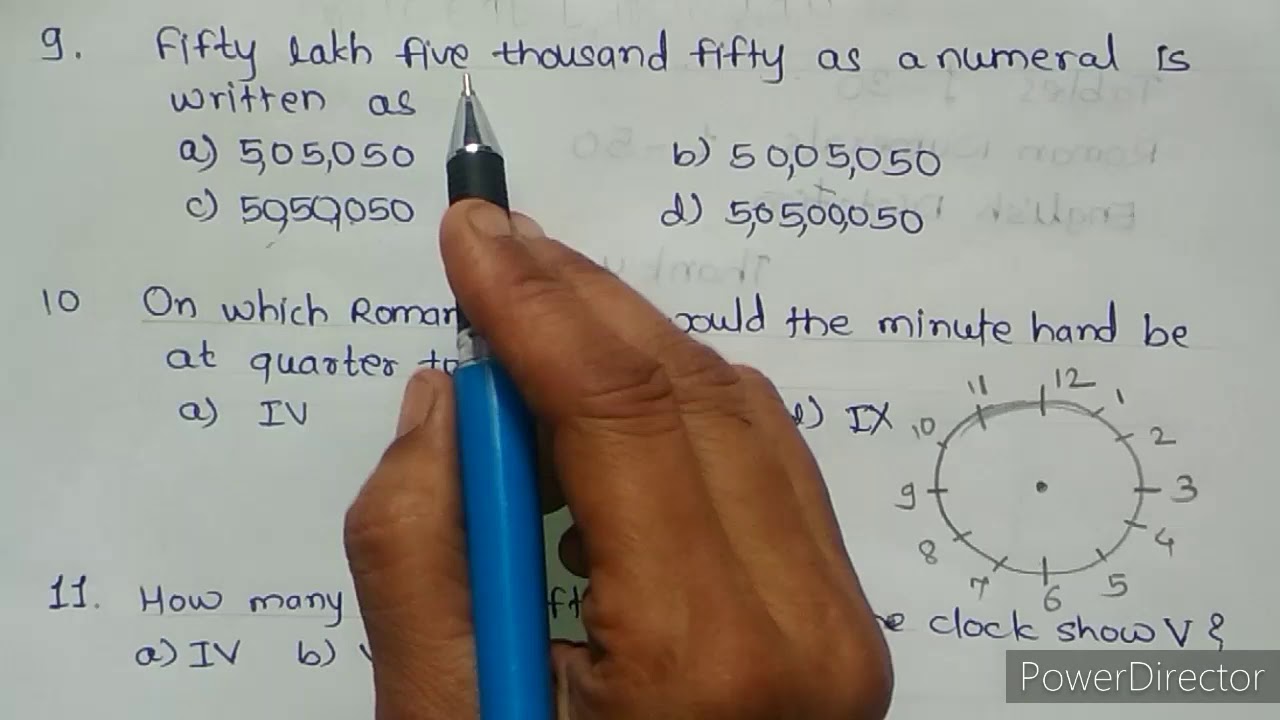 9. Fifty lakh five thousand fifty as a numeral is
written as
a) 5,05,050 b) 50,05,050
c) 50,50,050 d) 5,05,00,050
10 On which Roman would the minute hand be
at quarter to
a) IV IX
11. How many clock show V &
a) IV b)
12
1
2
3
4
5
6
7
8
9
10
11
PowerDirector